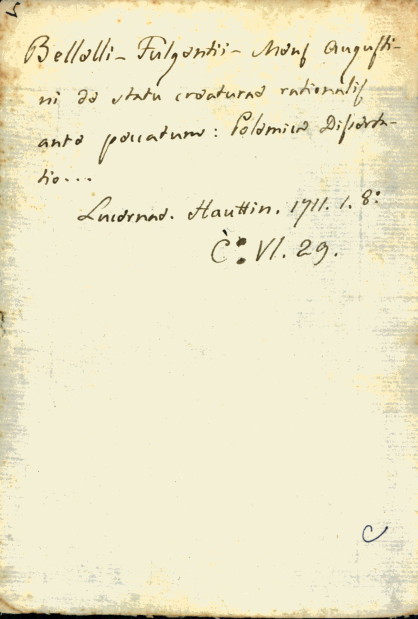 Bellelli- Fulgentii- Mens Augusti-
ni de statu creaturae rationalis
ante peccatum: Polemica Disserta-
tio...
Lucernae. Hauttin. 1711. 1. 8:
C: VI. 29.